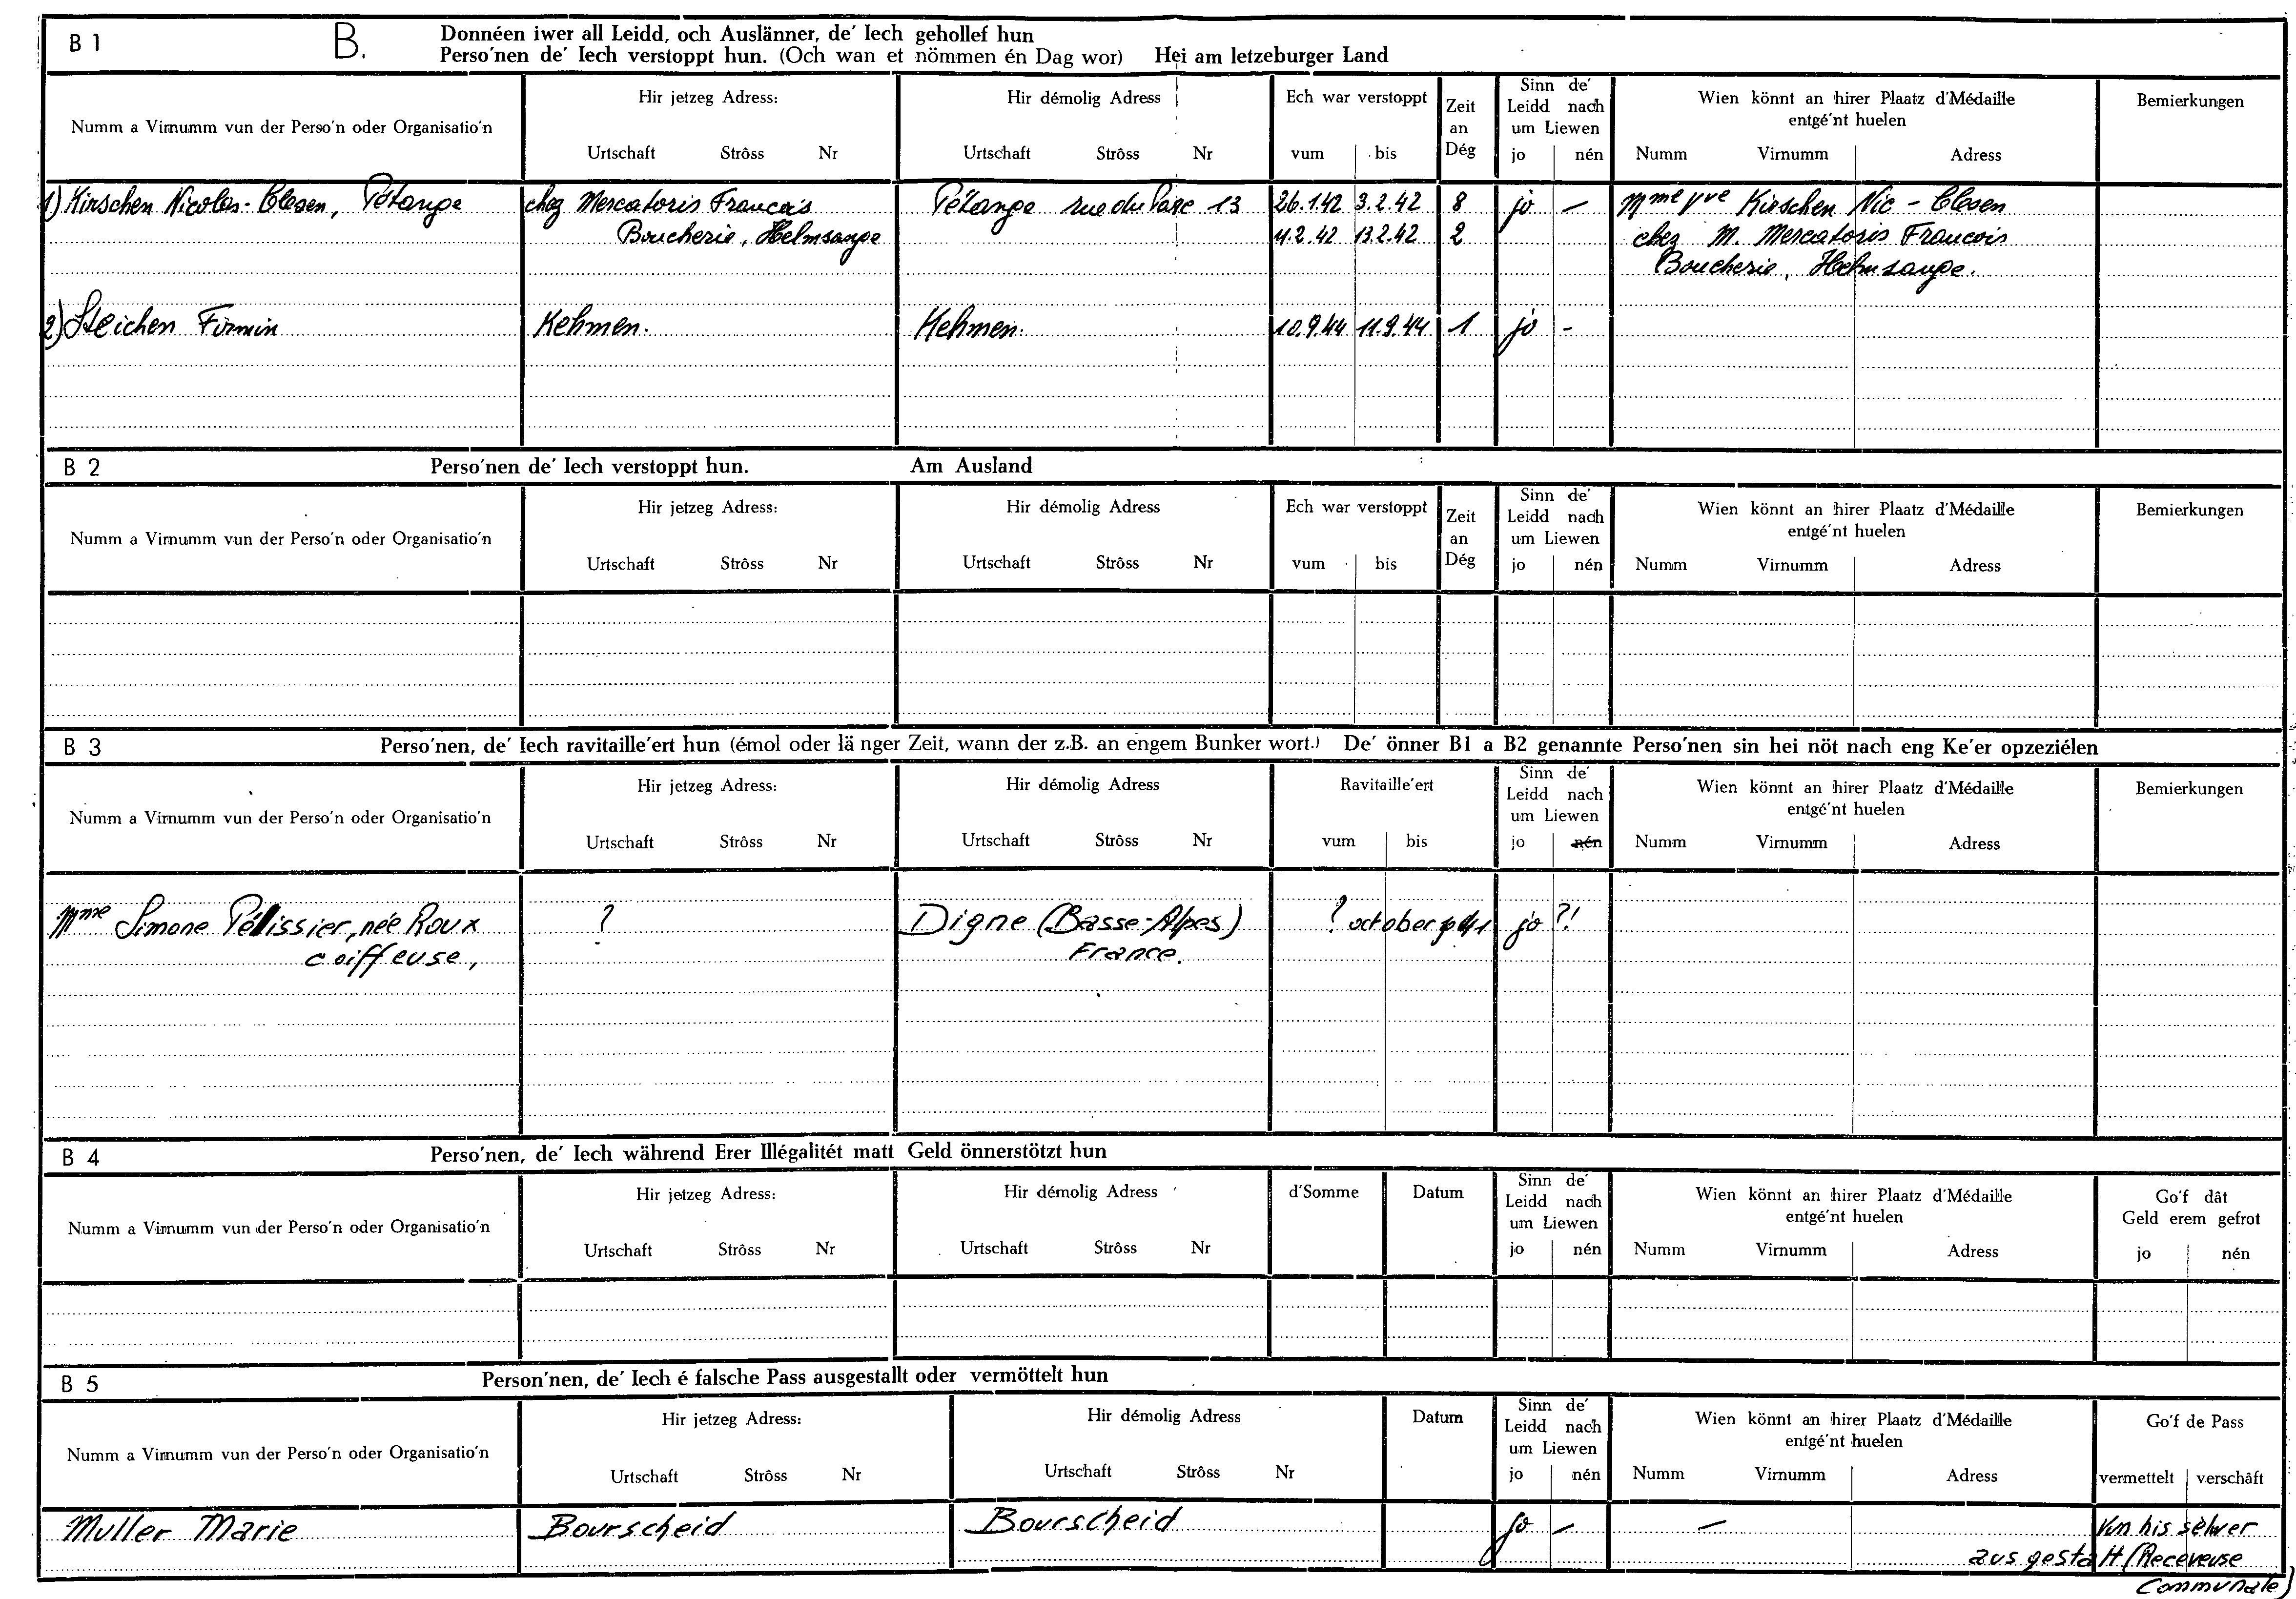 B 1 B. Donnéen iwer all Leidd, och Auslänner, de' Iech gehollef hun
Perso'nen de' Iech verstoppt hun. (Och wan et nömmen én Dag wor) Hei am letzeburger Land
Numm a Virnumm vun der Perso'n oder Organisatio'n
Hir jetzeg Adress:
Urtschaft Strôss Nr
Hir démolig Adress
Urtschaft Strôss Nr
Ech war verstoppt
vum bis
Zeit
an
Dég
Sinn de'
Leidd nach
um Liewen
jo nén
Wien könnt an hirer Plaatz d'Médaille
entgé'nt huelen
Numm Virnumm Adress
Bemierkungen
1) Kirschen Nicolas-Clesen, Pétange chez Mercatoris Francois Pétange rue du Parc 13 26.1.42 3.2.42 8 jo – Mme Vve Kirschen Nic - Clesen
Boucherie, Helmsange 11.2.42 13.2.42 2 chez M. Mercatoris Francois
Boucherie, Helmsange.
2) Steichen Firmin Kehmen. Kehmen. 10.9.44 11.9.44 1 jo -
B 2 Perso'nen de' Iech verstoppt hun. Am Ausland
Numm a Virnumm vun der Perso'n oder Organisatio'n
Hir jetzeg Adress:
Urtschaft Strôss Nr
Hir démolig Adress
Urtschaft Strôss Nr
Ech war verstoppt
vum bis
Zeit
an
Dég
Sinn de'
Leidd nach
um Liewen
jo nén
Wien könnt an hirer Plaatz d'Médaille
entgé'nt huelen
Numm Virnumm Adress
Bemierkungen
B 3 Perso'nen, de' Iech ravitaille'ert hun (émol oder länger Zeit, wann der z.B. an engem Bunker wort.) De' önner B1 a B2 genannte Perso'nen sin hei nöt nach eng Ke'er opzeziélen
Numm a Virnumm vun der Perso'n oder Organisatio'n
Hir jetzeg Adress:
Urtschaft Strôss Nr
Hir démolig Adress
Urtschaft Strôss Nr
Ravitaille'ert
vum bis
Sinn de'
Leidd nach
um Liewen
jo nén
Wien könnt an hirer Plaatz d'Médaille
entgé'nt huelen
Numm Virnumm Adress
Bemierkungen
Mme Simone Pélissier, née Roux ? Digne (Basse-Alpes) ? october 41 jo ?!
coiffeuse, France.
B 4 Perso'nen, de' Iech während Erer Illégalitét matt Geld önnerstötzt hun
Numm a Virnumm vun der Perso'n oder Organisatio'n
Hir jetzeg Adress:
Urtschaft Strôss Nr
Hir démolig Adress
Urtschaft Strôss Nr
d'Somme
Datum
Sinn de'
Leidd nach
um Liewen
jo nén
Wien könnt an hirer Plaatz d'Médaille
entgé'nt huelen
Numm Virnumm Adress
Go'f dât
Geld erem gefrot
jo nén
B 5 Person'nen, de' Iech é falsche Pass ausgestallt oder vermöttelt hun
Numm a Virnumm vun der Perso'n oder Organisatio'n
Hir jetzeg Adress:
Urtschaft Strôss Nr
Hir démolig Adress
Urtschaft Strôss Nr
Datum
Sinn de'
Leidd nach
um Liewen
jo nén
Wien könnt an hirer Plaatz d'Médaille
entgé'nt huelen
Numm Virnumm Adress
Go'f de Pass
vermettelt verschâft
Muller Marie Bourscheid Bourscheid jo – – Vun his sèlwer
ausgestalt (Receveuse
Communale)